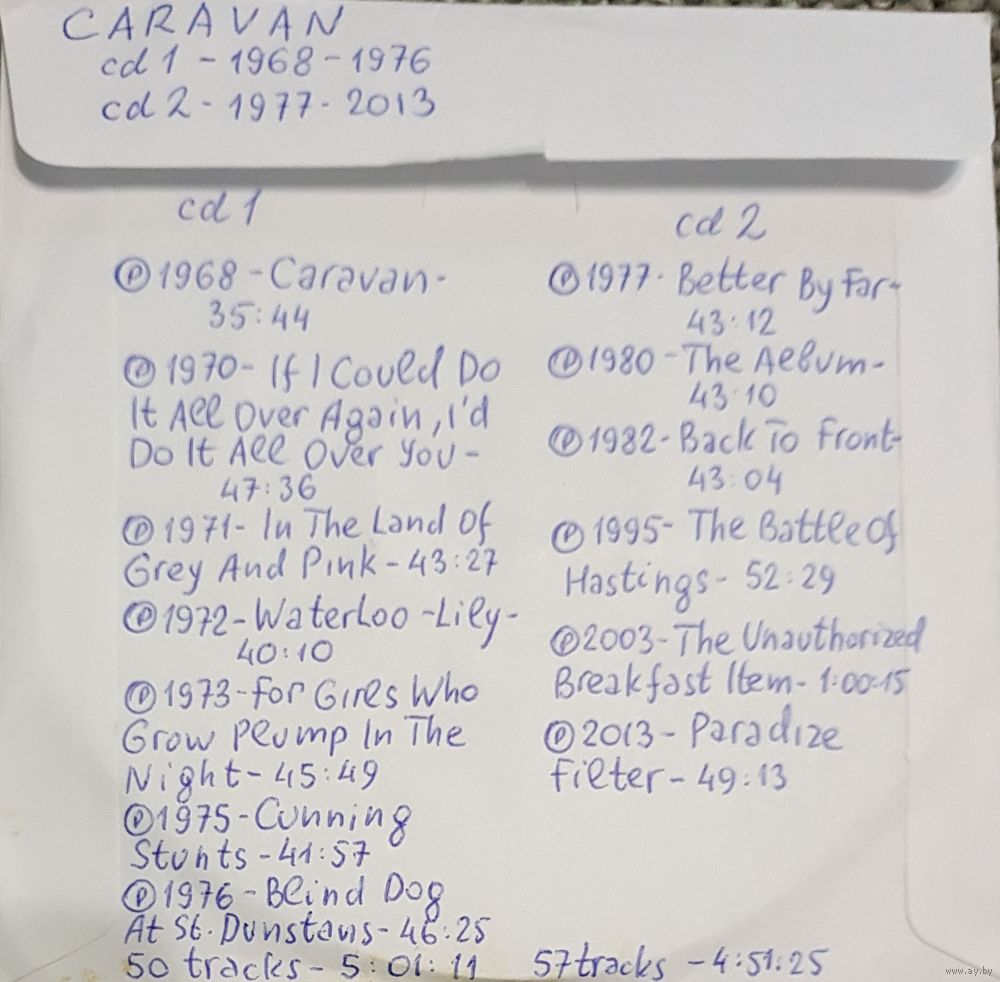 CARAVAN
cd 1 - 1968 - 1976
cd 2 - 1977 - 2013
cd 1
℗ 1968 - Caravan -
35:44
℗ 1970 - If I Could Do
It All Over Again, I'd
Do It All Over You -
47:36
℗ 1971 - In The Land Of
Grey And Pink - 43:27
℗ 1972 - Waterloo - Lily -
40:10
℗ 1973 - For Girls Who
Grow Plump In The
Night - 45:49
℗ 1975 - Cunning
Stunts - 41:57
℗ 1976 - Blind Dog
At St. Dunstans - 46:25
50 tracks - 5:01:11
cd 2
℗ 1977 - Better By Far -
43:12
℗ 1980 - The Album -
43:10
℗ 1982 - Back To Front -
43:04
℗ 1995 - The Battle Of
Hastings - 52:29
℗ 2003 - The Unauthorized
Breakfast Item - 1:00:15
℗ 2013 - Paradize
Filter - 49:13
57 tracks - 4:51:25
www.ay.by